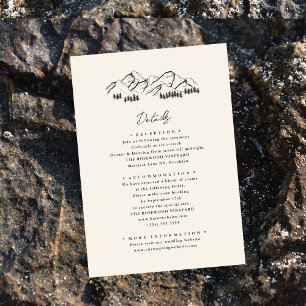 Details
• RECEPTION •
Join us following the ceremony
Cocktails at six o'clock
Dinner & Dancing from seven till midnight
THE ROSEWOOD VINEYARD
Brooklyn
• ACCOMMODATION •
We have reserved a block of rooms
at the following hotel.
Please make your booking
by September 17th
to receive the special rate
THE ROSEWOOD VINEYARD
• MORE INFORMATION •
Please visit our wedding website